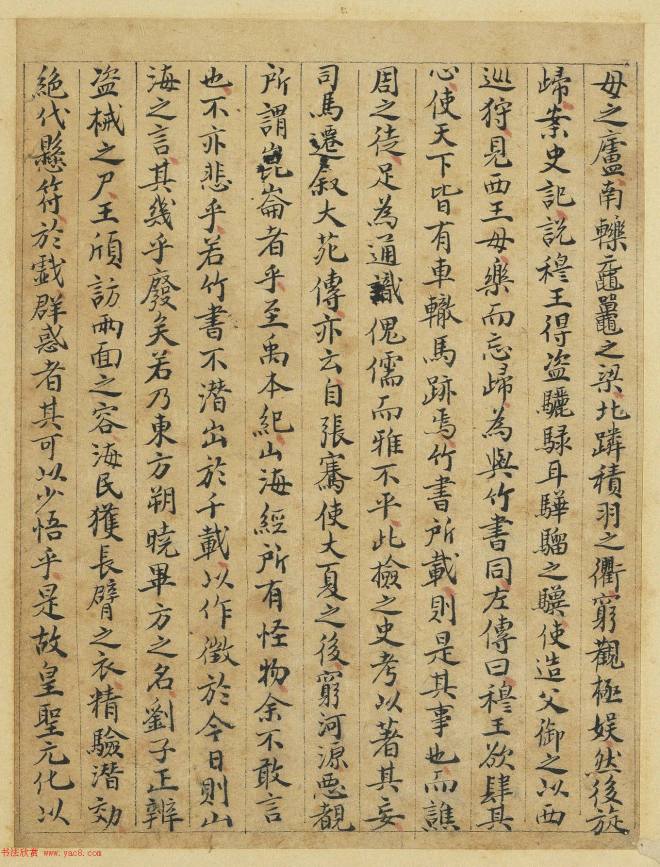 母之廬南轢黿鼉之梁北躡積羽之衢窮觀極娛然後旋
歸案史記說穆王得盜驪騄耳驊騮之驥使造父御之以西
巡狩見西王母樂而忘歸為與竹書同左傳曰穆王欲肆其
心使天下皆有車轍馬跡焉竹書所載則是其事也而譙
周之徒足為通識傀儒而雅不平此撿之史考以著其妄
司馬遷叙大苑傳亦云自張騫使大夏之後窮河源惡覩
所謂崑崙者乎至禹本紀山海經所有怪物余不敢言
也不亦悲乎若竹書不潛出於千載以作徵於今日則山
海之言其幾乎廢矣若乃東方朔曉畢方之名劉子正辨
盜械之尸王頎訪兩面之容海民獲長臂之衣精驗潛効
絕代懸符於戲群惑者其可以少悟乎是故皇聖元化以
书法欣赏 www.yac8.com